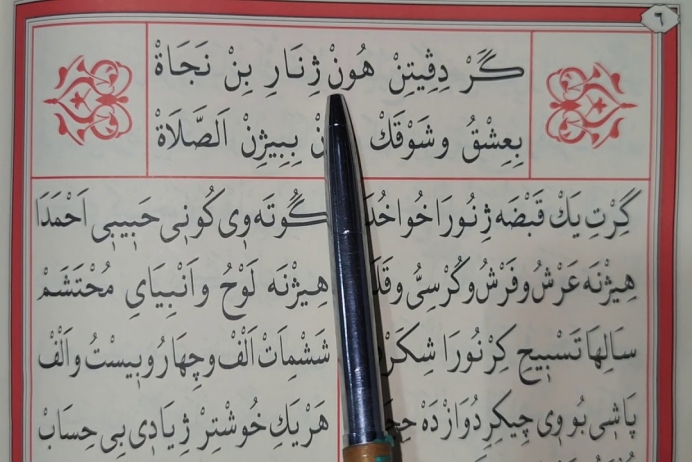 ٦
گَرْ دِڤِيتِنْ هُونْ ژِنَارِ بِنْ نَجَاةْ
بِعِشْقُ وشَوْقَكْ بِبِيژِنْ اَلصَّلَاةْ
گِرْتِ يَكْ قَبْضَه ژِنُورَا خُو گُوتَه وِى كُونِى حَبِيبِى اَحْمَدَا
هِيژْنَه عَرْشُ وفَرْشُ وكُرْسِىُّ هِيژْنَه لَوْحُ واَنْبِيَاىِ مُحْتَشَمْ
سَالِهَا تَسْبِيحِ كِرْنُورَا شَشْمِاَتْ اَلْفُ وچِهَارُ وبِيسْتُ واَلْفْ
پَاشِى بُو وِى چِيكِرِ دُوَازْدَه هَرْ يَكِ خُوشْتِرْ ژِيَادِى بِى حِسَابْ